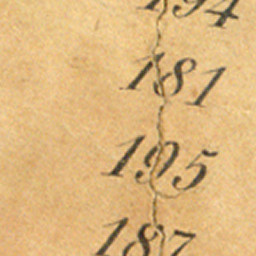 194
181
195
187